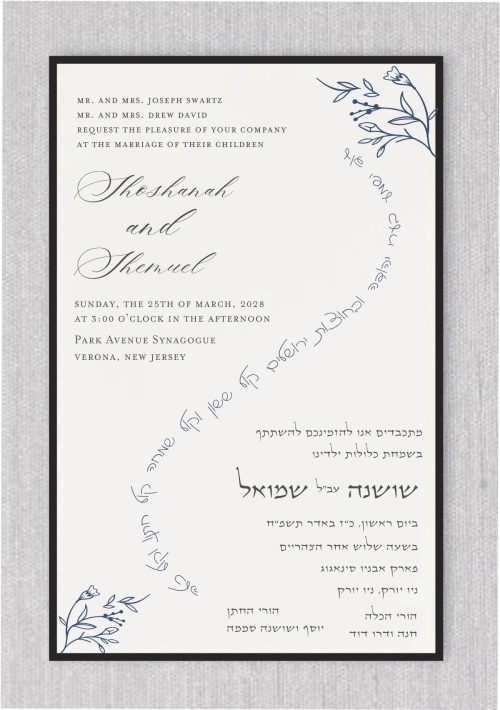 MR. AND MRS. JOSEPH SWARTZ
MR. AND MRS. DREW DAVID
REQUEST THE PLEASURE OF YOUR COMPANY
AT THE MARRIAGE OF THEIR CHILDREN
Shoshanah
and
Shemuel
SUNDAY, THE 25TH OF MARCH, 2028
AT 3:00 O'CLOCK IN THE AFTERNOON
PARK AVENUE SYNAGOGUE
VERONA, NEW JERSEY
עוד ישמע בערי יהודה ובחוצות ירושלים קול ששון וקול שמחה קול חתן וקול כלה
מתכבדים אנו להזמינכם להשתתף
בשמחת כלולות ילדינו
שושנה עב"ל שמואל
ביום ראשון, כ"ז באדר תשפ"ח
בשעה שלוש אחר הצהריים
פארק אבניו סינאגוג
ניו יורק, ניו יורק
הורי הכלה
חנה ודרו דוד
הורי החתן
יוסף ושושנה סממה